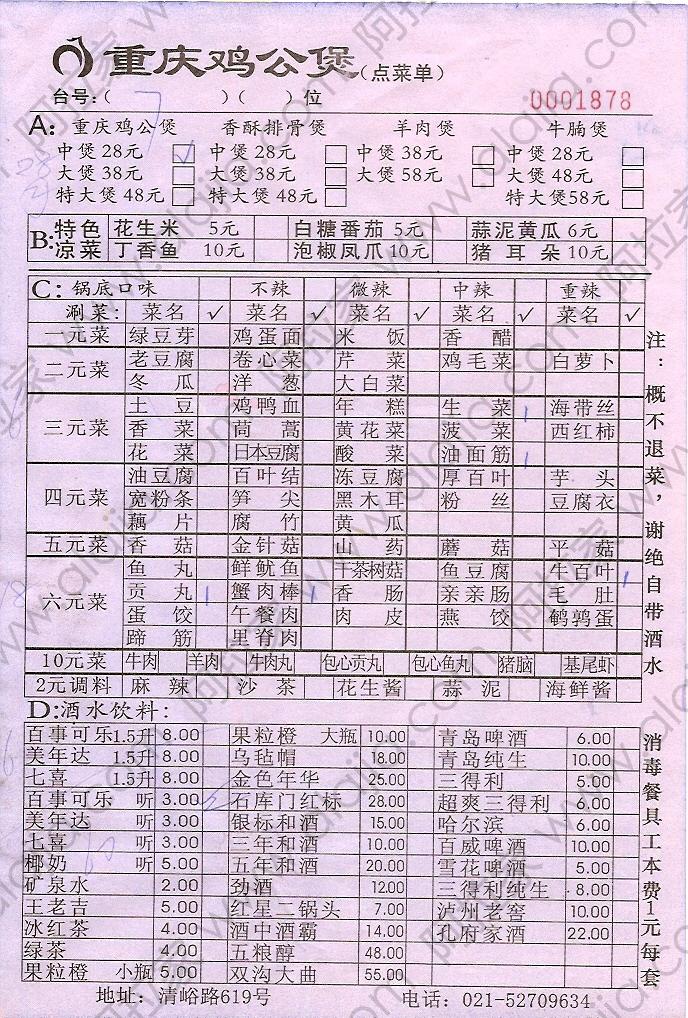 重庆鸡公煲(点菜单)
台号:( 7 )( )位
0001878
A: 重庆鸡公煲 香酥排骨煲 羊肉煲 牛腩煲
中煲28元 中煲28元 中煲38元 中煲28元
大煲38元 大煲38元 大煲58元 大煲48元
特大煲48元 特大煲48元 特大煲58元
B: 特色凉菜 花生米 5元 白糖番茄 5元 蒜泥黄瓜 6元
丁香鱼 10元 泡椒凤爪 10元 猪耳朵 10元
C: 锅底口味 不辣 微辣 中辣 重辣
涮菜: 菜名 √ 菜名 √ 菜名 √ 菜名 √ 菜名 √
一元菜 绿豆芽 鸡蛋面 米饭 香醋
二元菜 老豆腐 卷心菜 芹菜 鸡毛菜 白萝卜
冬瓜 洋葱 大白菜
三元菜 土豆 鸡鸭血 年糕 生菜 海带丝
香菜 茼蒿 黄花菜 菠菜 西红柿
花菜 日本豆腐 酸菜 油面筋
四元菜 油豆腐 百叶结 冻豆腐 厚百叶 芋头
宽粉条 笋尖 黑木耳 粉丝 豆腐衣
藕片 腐竹 黄瓜
五元菜 香菇 金针菇 山药 蘑菇 平菇
六元菜 鱼丸 鲜鱿鱼 干茶树菇 鱼豆腐 牛百叶
贡丸 蟹肉棒 香肠 亲亲肠 毛肚
蛋饺 午餐肉 肉皮 燕饺 鹌鹑蛋
蹄筋 里脊肉
10元菜 牛肉 羊肉 牛肉丸 包心贡丸 包心鱼丸 猪脑 基尾虾
2元调料 麻辣 沙茶 花生酱 蒜泥 海鲜酱
注:概不退菜,谢绝自带酒水
D:酒水饮料:
百事可乐1.5升 8.00 果粒橙 大瓶 10.00 青岛啤酒 6.00
美年达 1.5升 8.00 乌毡帽 18.00 青岛纯生 10.00
七喜 1.5升 8.00 金色年华 25.00 三得利 5.00
百事可乐 听 3.00 石库门红标 28.00 超爽三得利 6.00
美年达 听 3.00 银标和酒 15.00 哈尔滨 6.00
七喜 听 3.00 三年和酒 10.00 百威啤酒 10.00
椰奶 听 5.00 五年和酒 20.00 雪花啤酒 5.00
矿泉水 2.00 劲酒 12.00 三得利纯生 8.00
王老吉 5.00 红星二锅头 7.00 泸州老窖 10.00
冰红茶 4.00 酒中酒霸 14.00 孔府家酒 22.00
绿茶 4.00 五粮醇 48.00
果粒橙 小瓶 5.00 双沟大曲 55.00
消毒餐具工本费1元每套
地址: 清峪路619号 电话: 021-52709634
阿拉家 www.alajia.com